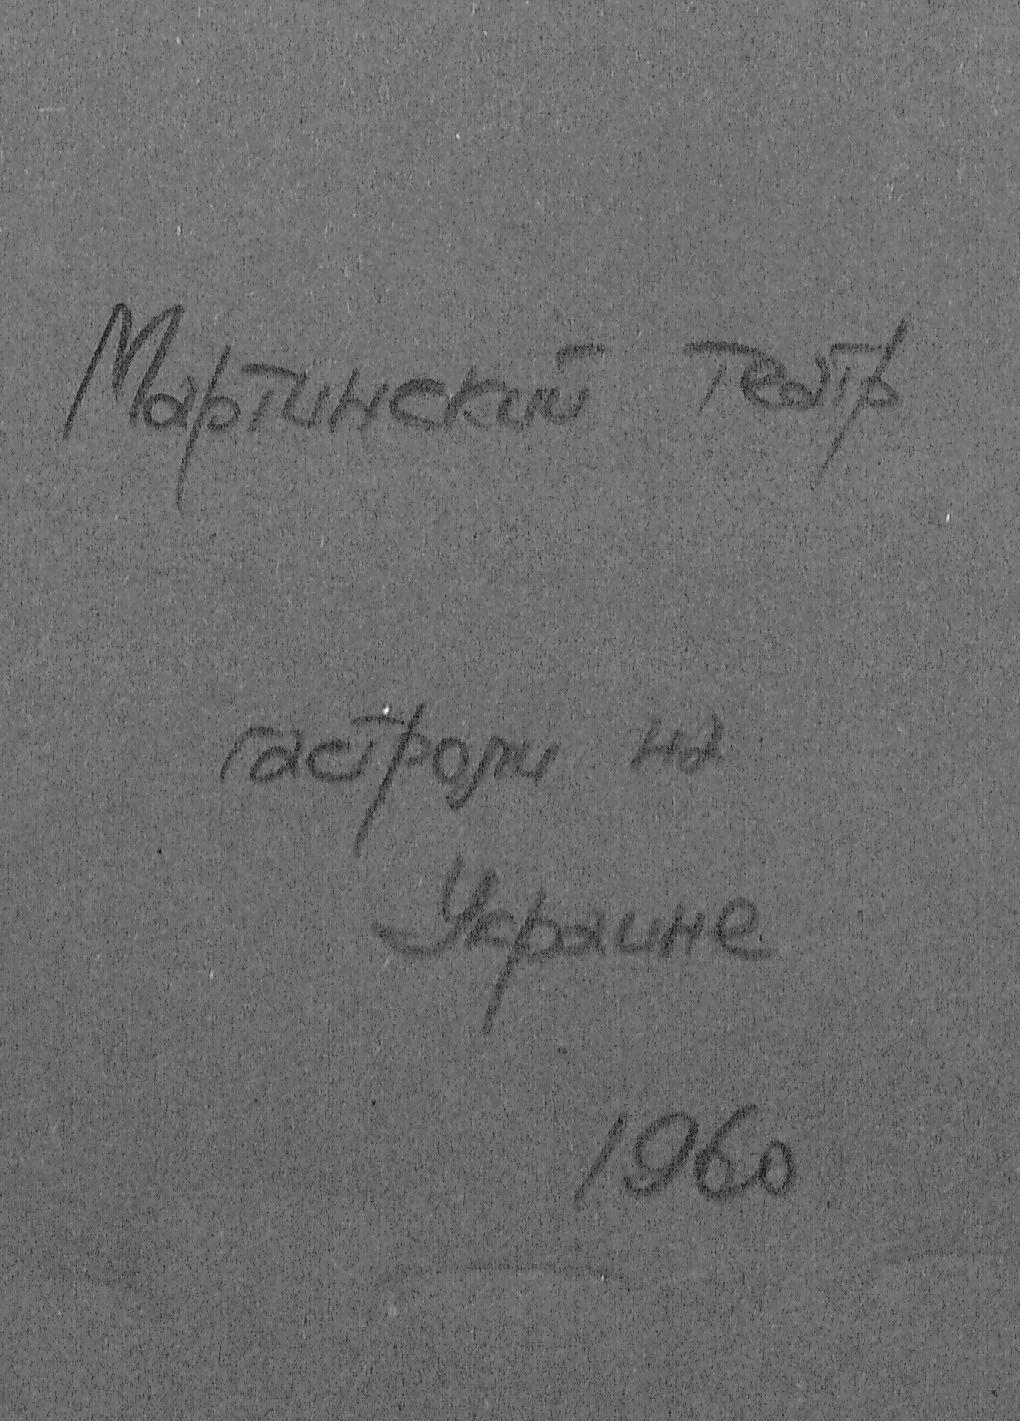 Мартинский театр
гастроли на
Украине
1960